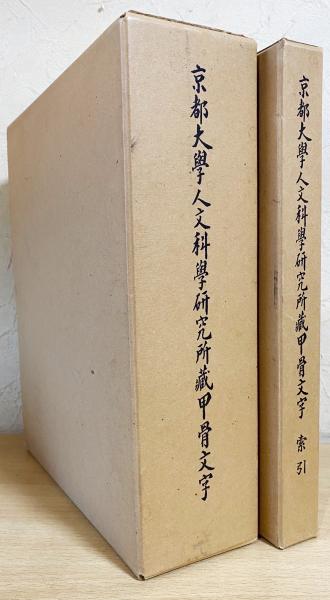 京都大學人文科學研究所藏甲骨文字
京都大學人文科學研究所藏甲骨文字 索引